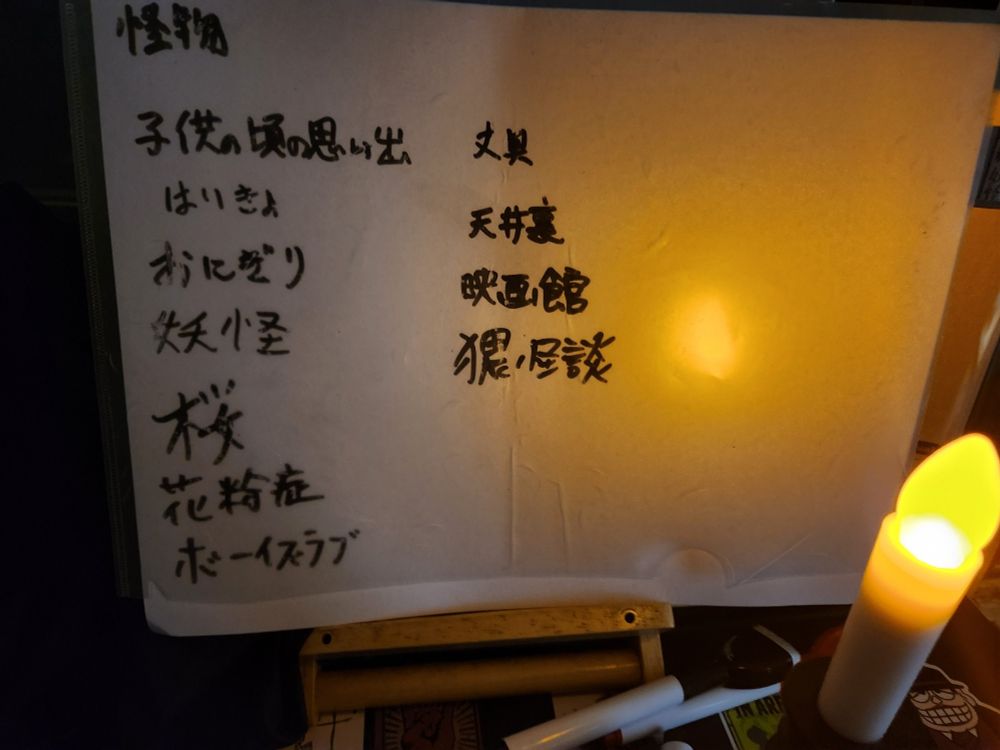 怪物
子供の頃の思い出
はりきょ
おにぎり
妖怪
桜
花粉症
ボーイズラブ
天井裏
映画館
怪談